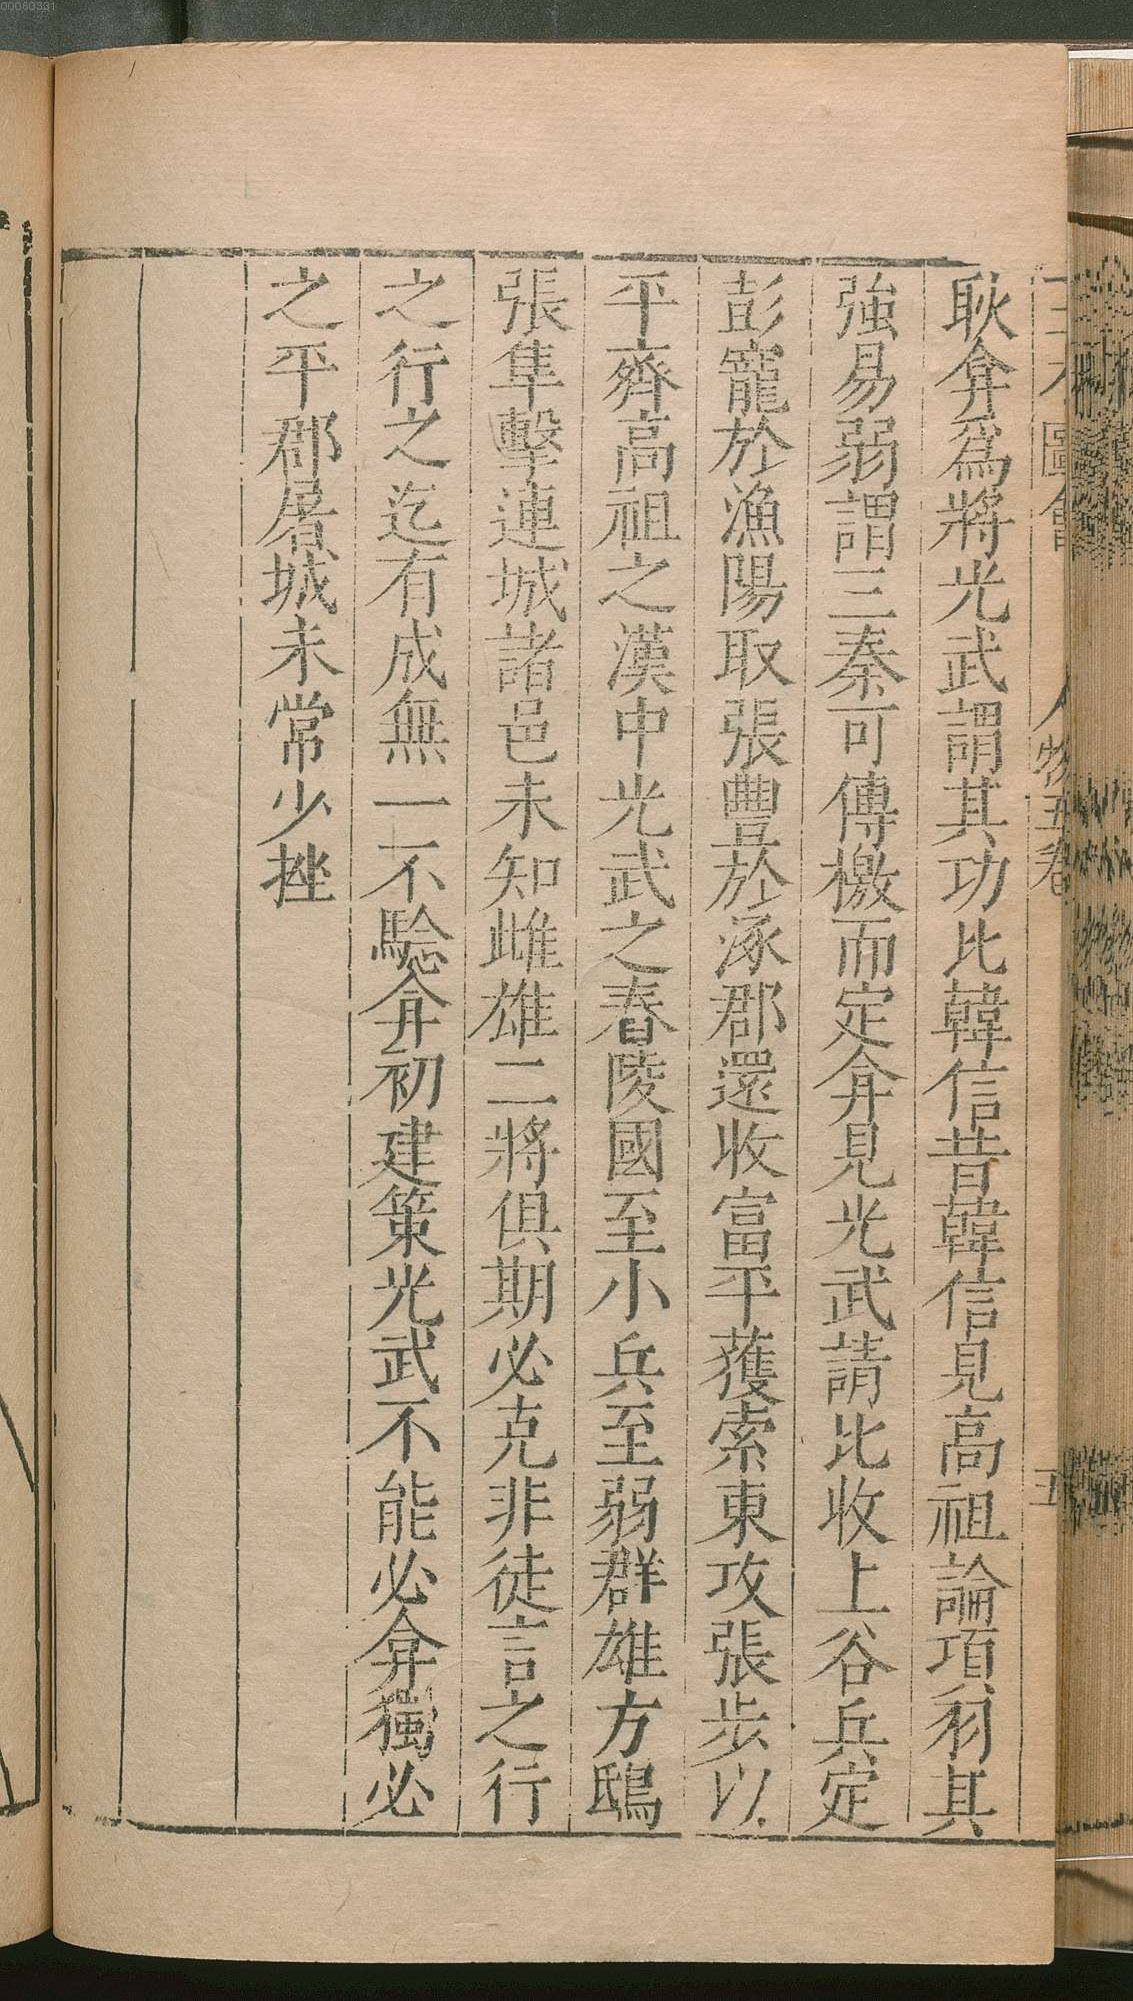 00060331
三才圖會 人物五卷 五
耿弇爲將光武謂其功比韓信昔韓信見高祖論項羽其
強易弱謂三秦可傳檄而定弇見光武請比收上谷兵定
彭寵於漁陽取張豐於涿郡還收富平獲索東攻張步以
平齊高祖之漢中光武之舂陵國至小兵至弱群雄方鴟
張隼擊連城諸邑未知雌雄二將俱期必克非徒言之行
之行之迄有成無一不驗弇初建策光武不能必弇獨必
之平郡屠城未常少挫